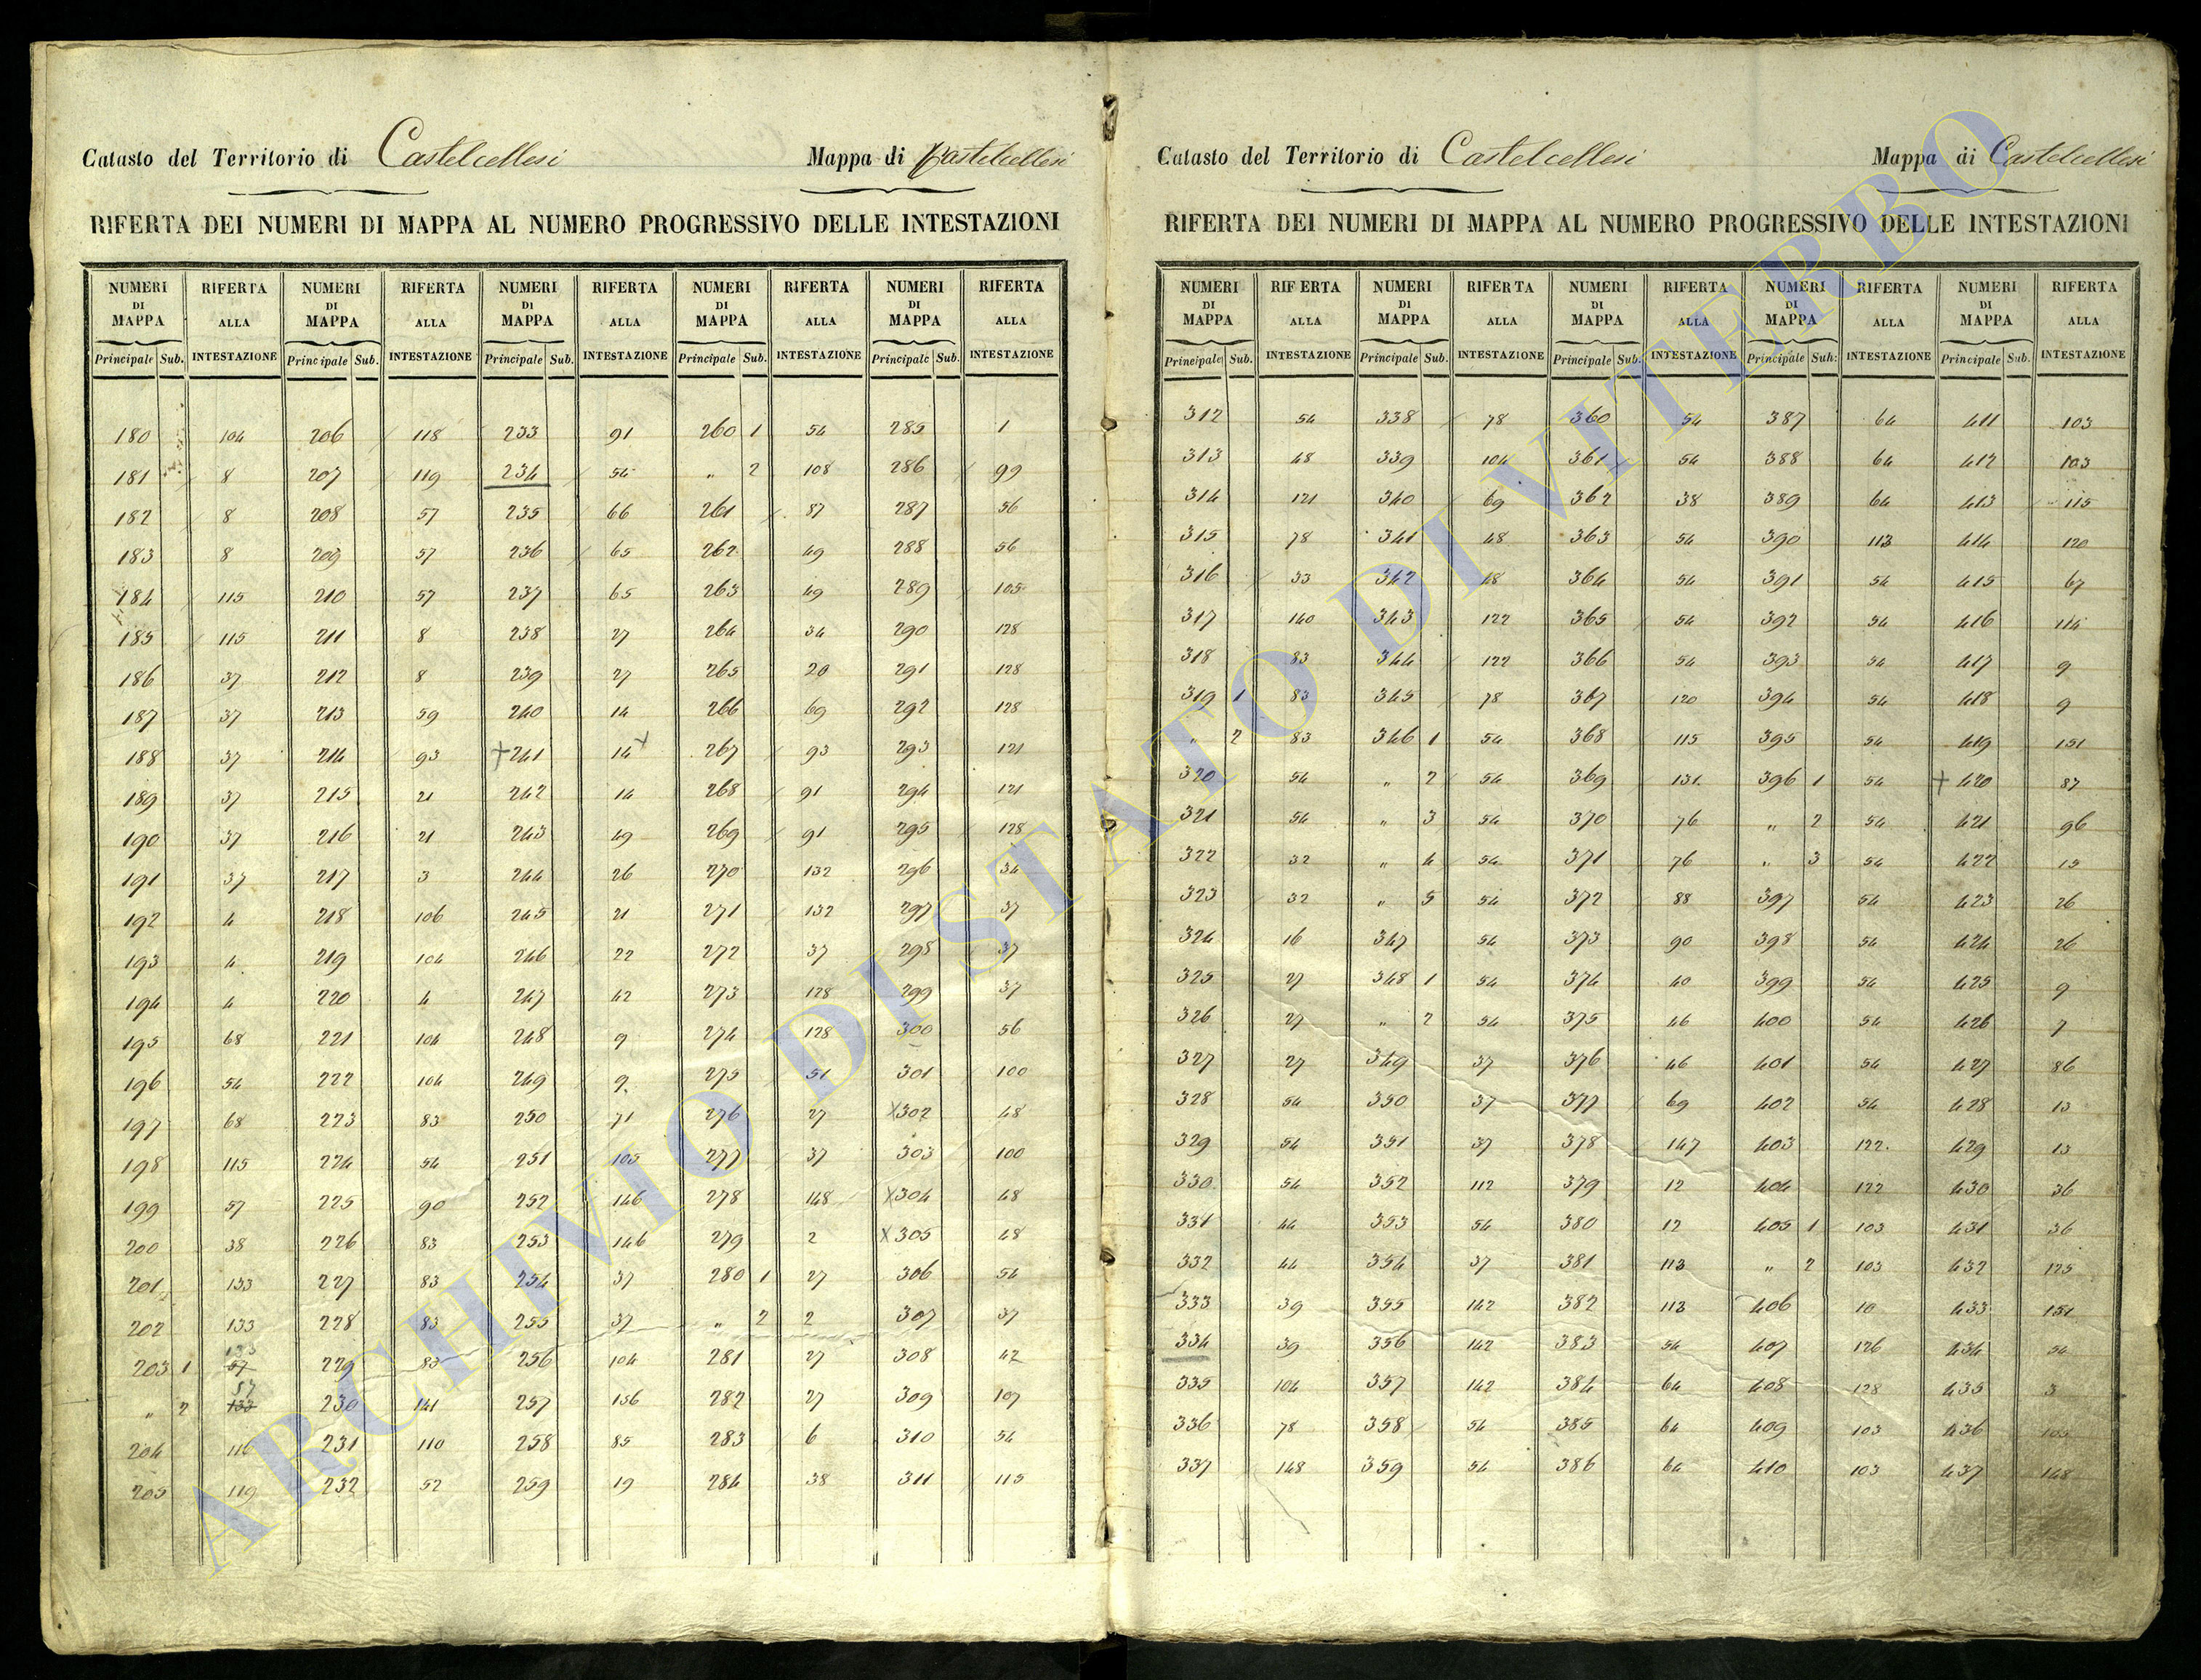 Catasto del Territorio di Castelcellesi Mappa di Castelcellesi
RIFERTA DEI NUMERI DI MAPPA AL NUMERO PROGRESSIVO DELLE INTESTAZIONI
NUMERI RIFERTA NUMERI RIFERTA NUMERI RIFERTA NUMERI RIFERTA NUMERI RIFERTA
DI DI DI DI DI
MAPPA ALLA MAPPA ALLA MAPPA ALLA MAPPA ALLA MAPPA ALLA
Principale Sub. INTESTAZIONE Principale Sub. INTESTAZIONE Principale Sub. INTESTAZIONE Principale Sub. INTESTAZIONE Principale Sub. INTESTAZIONE
180 104 206 118 233 91 260 1 54 285 1
181 8 207 119 234 54 " 2 108 286 99
182 8 208 57 235 66 261 87 287 56
183 8 209 57 236 65 262 49 288 56
184 115 210 57 237 65 263 49 289 105
185 115 211 8 238 27 264 34 290 128
186 37 212 8 239 27 265 20 291 128
187 37 213 59 240 14 266 69 292 128
188 37 214 93 +241 14 x 267 93 293 121
189 37 215 21 242 14 268 91 294 121
190 37 216 21 243 49 269 91 295 128
191 37 217 3 244 26 270 132 296 34
192 4 218 106 245 21 271 132 297 37
193 4 219 104 246 22 272 37 298 37
194 4 220 4 247 42 273 128 299 37
195 68 221 104 248 9 274 128 300 56
196 54 222 104 249 9 275 51 301 100
197 68 223 83 250 71 276 27 x302 48
198 115 224 54 251 105 277 37 303 100
199 57 225 90 252 146 278 148 x304 48
200 38 226 83 253 146 279 2 x305 48
201 133 227 83 254 37 280 1 27 306 54
202 133 228 83 255 37 " 2 2 307 37
203 1 57 133 229 83 256 104 281 27 308 42
" 2 133 57 230 141 257 136 282 27 309 107
204 116 231 110 258 85 283 6 310 54
205 119 232 52 259 19 284 38 311 115
Catasto del Territorio di Castelcellesi Mappa di Castelcellesi
RIFERTA DEI NUMERI DI MAPPA AL NUMERO PROGRESSIVO DELLE INTESTAZIONI
NUMERI RIFERTA NUMERI RIFERTA NUMERI RIFERTA NUMERI RIFERTA NUMERI RIFERTA
DI DI DI DI DI
MAPPA ALLA MAPPA ALLA MAPPA ALLA MAPPA ALLA MAPPA ALLA
Principale Sub. INTESTAZIONE Principale Sub. INTESTAZIONE Principale Sub. INTESTAZIONE Principale Sub. INTESTAZIONE Principale Sub. INTESTAZIONE
312 54 338 78 360 54 387 64 411 103
313 48 339 104 361 54 388 64 412 103
314 121 340 69 362 38 389 64 413 115
315 78 341 48 363 54 390 113 414 120
316 33 342 48 364 54 391 54 415 67
317 140 343 122 365 54 392 54 416 114
318 83 344 122 366 54 393 54 417 9
319 1 83 345 78 367 120 394 54 418 9
" 2 83 346 1 54 368 115 395 54 419 151
320 54 " 2 54 369 131 396 1 54 +420 87
321 54 " 3 54 370 76 " 2 54 421 96
322 32 " 4 54 371 76 " 3 54 422 15
323 32 " 5 54 372 88 397 54 423 26
324 16 347 54 373 90 398 54 424 26
325 27 348 1 54 374 40 399 54 425 9
326 27 " 2 54 375 46 400 54 426 7
327 27 349 37 376 46 401 54 427 86
328 54 350 37 377 69 402 54 428 13
329 54 351 37 378 147 403 122 429 13
330 54 352 112 379 12 404 122 430 36
331 44 353 54 380 12 405 1 103 431 36
332 44 354 37 381 113 " 2 103 432 125
333 39 355 142 382 113 406 10 433 151
334 39 356 142 383 54 407 126 434 54
335 104 357 142 384 64 408 128 435 3
336 78 358 54 385 64 409 103 436 105
337 148 359 54 386 64 410 103 437 148
ARCHIVIO DI STATO DI VITERBO